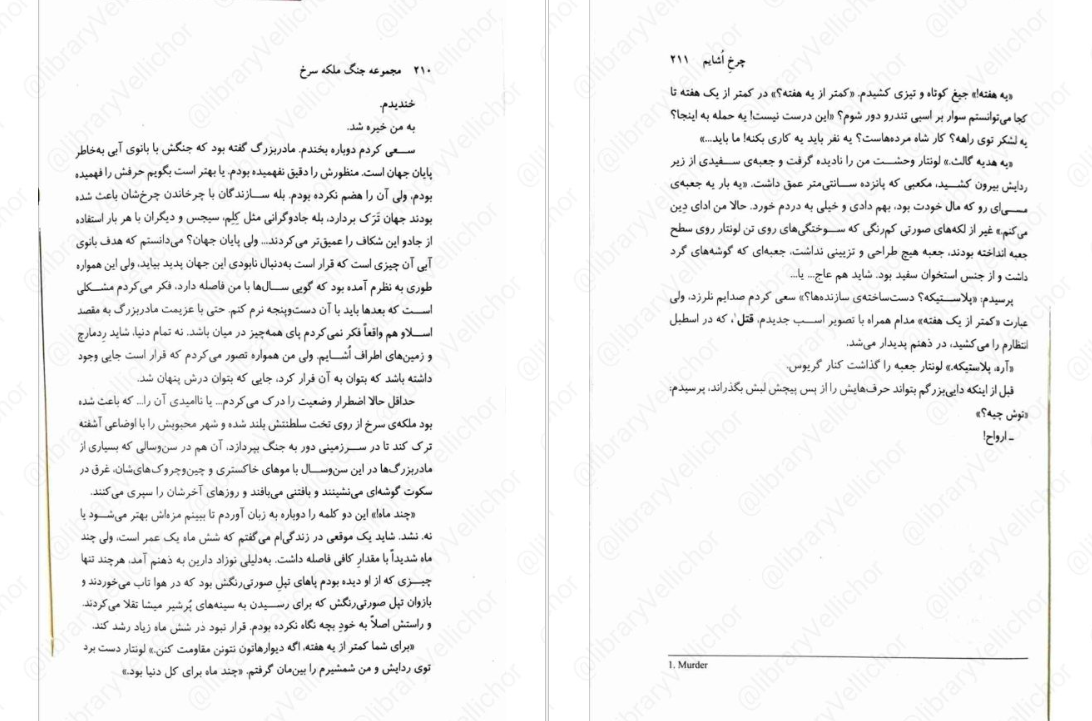 ۲۱۰ مجموعه جنگ ملکه سرخ
خندیدم.
به من خیره شد.
سعی کردم دوباره بخندم. مادربزرگ گفته بود که جنگش با بانوی آبی به‌خاطر
پایان جهان است. منظورش را دقیق نفهمیده بودم. یا بهتر است بگویم حرفش را فهمیده
بودم، ولی آن را هضم نکرده بودم. بله سازندگان با چرخاندن چرخ‌شان باعث شده
بودند جهان تَرَک بردارد، بله جادوگرانی مثل کِلِم، سیجس و دیگران با هر بار استفاده
از جادو این شکاف را عمیق‌تر می‌کردند... ولی پایان جهان؟ می‌دانستم که هدف بانوی
آبی آن چیزی است که قرار است به‌دنبال نابودی این جهان پدید بیاید، ولی این همواره
طوری به نظرم آمده بود که گویی سال‌ها با من فاصله دارد، فکر می‌کردم مشکلی
است که بعدها باید با آن دست‌وپنجه نرم کنم. حتی با عزیمت مادربزرگ به مقصد
اسلاو هم واقعاً فکر نمی‌کردم پای همه‌چیز در میان باشد. نه تمام دنیا، شاید رِدمارچ
و زمین‌های اطراف اُشایم. ولی من همواره تصور می‌کردم که قرار است جایی وجود
داشته باشد که بتوان به آن فرار کرد، جایی که بتوان درش پنهان شد.
حداقل حالا اضطرار وضعیت را درک می‌کردم... یا ناامیدی آن را... که باعث شده
بود ملکه‌ی سرخ از روی تخت سلطنتش بلند شده و شهر محبوبش را با اوضاعی آشفته
ترک کند تا در سرزمینی دور به جنگ بپردازد، آن هم در سن‌وسالی که بسیاری از
مادربزرگ‌ها در این سن‌وسال با موهای خاکستری و چین‌وچروک‌های‌شان، غرق در
سکوت گوشه‌ای می‌نشینند و بافتنی می‌بافند و روزهای آخرشان را سپری می‌کنند.
«چند ماه!» این دو کلمه را دوباره به زبان آوردم تا ببینم مزه‌اش بهتر می‌شود یا
نه. نشد. شاید یک موقعی در زندگی‌ام می‌گفتم که شش ماه یک عمر است، ولی چند
ماه شدیداً با مقدارِ کافی فاصله داشت. به‌دلیلی نوزاد دارین به ذهنم آمد، هرچند تنها
چیزی که از او دیده بودم پاهای تپل صورتی‌رنگش بود که در هوا تاب می‌خوردند و
بازوان تپل صورتی‌رنگش که برای رسیدن به سینه‌های پُرشیر میشا تقلا می‌کردند.
و راستش اصلاً به خودِ بچه نگاه نکرده بودم. قرار نبود در شش ماه زیاد رشد کند.
«برای شما کمتر از یه هفته، اگه دیوارهاتون نتونن مقاومت کنن.» لونتار دست برد
توی ردایش و من شمشیرم را بین‌مان گرفتم. «چند ماه برای کل دنیا بود.»
چرخِ اُشایم ۲۱۱
«یه هفته!» جیغ کوتاه و تیزی کشیدم. «کمتر از یه هفته؟» در کمتر از یک هفته تا
کجا می‌توانستم سوار بر اسبی تندرو دور شوم؟ «این درست نیست! یه حمله به اینجا؟
یه لشکر توی راهه؟ کار شاه مرده‌هاست؟ یه نفر باید یه کاری بکنه! ما باید...»
«یه هدیه گالت.» لونتار وحشت من را نادیده گرفت و جعبه‌ی سفیدی از زیر
ردایش بیرون کشید، مکعبی که پانزده سانتی‌متر عمق داشت. «یه بار یه جعبه‌ی
مسی‌ای رو که مال خودت بود، بهم دادی و خیلی به دردم خورد. حالا من ادای دِین
می‌کنم.» غیر از لکه‌های صورتی کم‌رنگی که سوختگی‌های روی تن لونتار روی سطح
جعبه انداخته بودند، جعبه هیچ طراحی و تزیینی نداشت. جعبه‌ای که گوشه‌های گرد
داشت و از جنس استخوان سفید بود. شاید هم عاج... یا...
پرسیدم: «پلاستیکه؟ دست‌ساخته‌ی سازنده‌ها؟» سعی کردم صدایم نلرزد، ولی
عبارت «کمتر از یک هفته» مدام همراه با تصویر اسب جدیدم، قتل۱، که در اسطبل
انتظارم را می‌کشید، در ذهنم پدیدار می‌شد.
«آره. پلاستیکه.» لونتار جعبه را گذاشت کنار گریوس.
قبل از اینکه دایی‌بزرگم بتواند حرف‌هایش را از پس پیچش لبش بگذراند، پرسیدم:
«توش چیه؟»
ـ ارواح!
1. Murder
@libraryVellichor